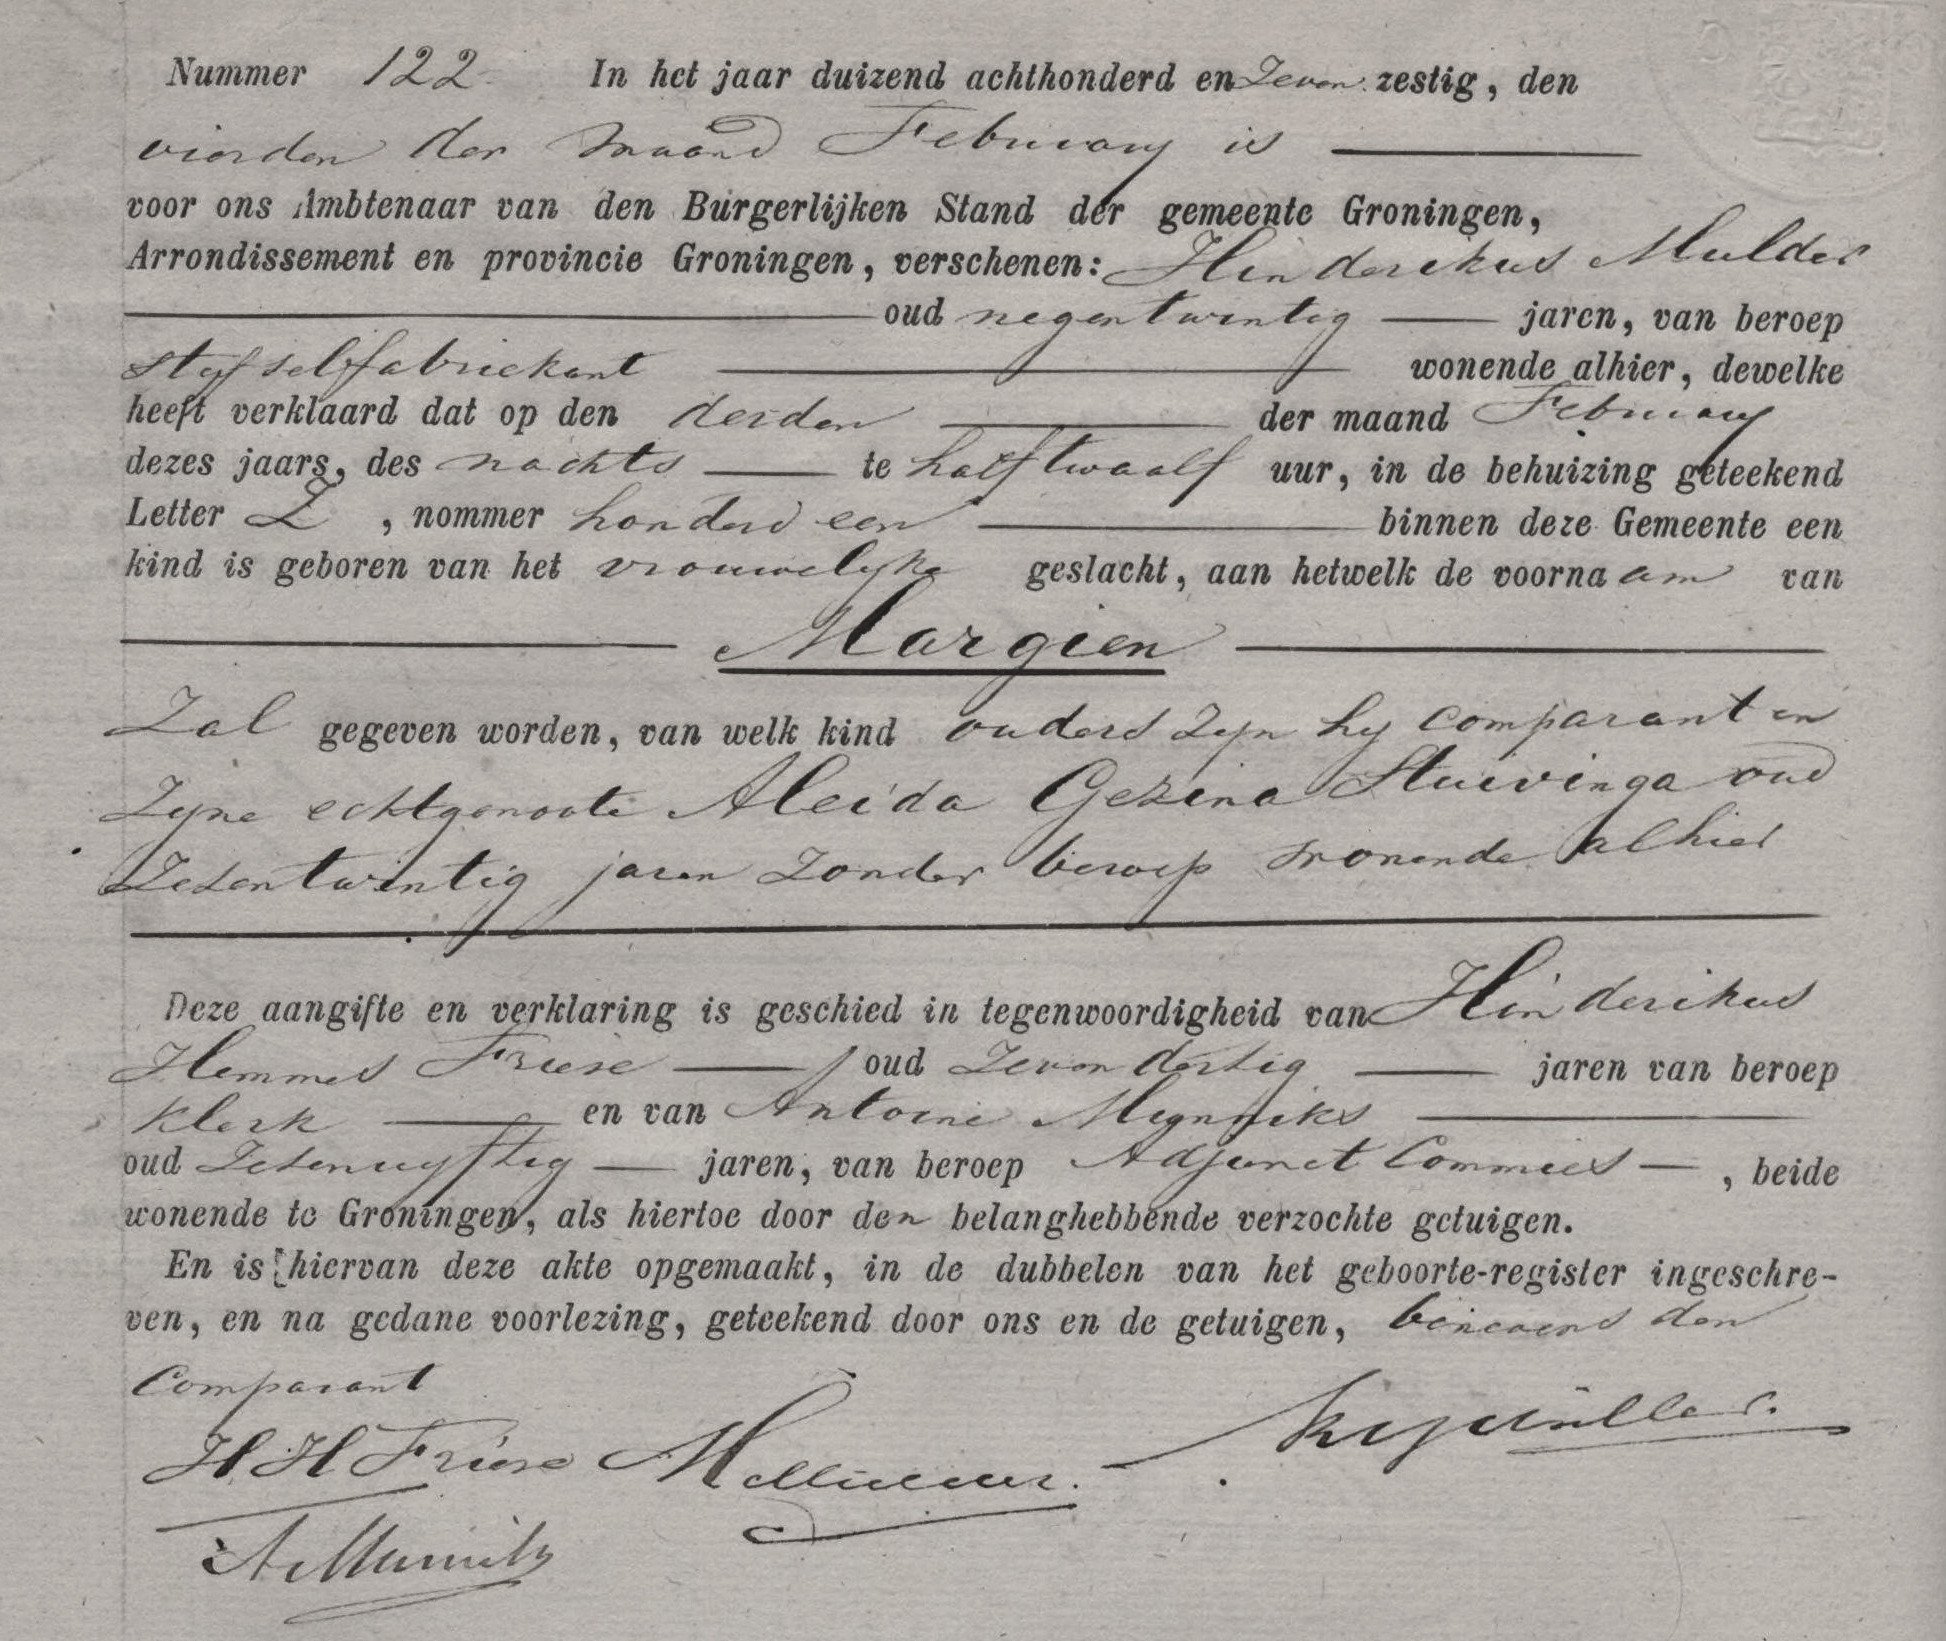 Nummer 122 In het jaar duizend achthonderd en Zeven zestig, den
vierden der maand February is
voor ons Ambtenaar van den Burgerlijken Stand der gemeente Groningen,
Arrondissement en provincie Groningen, verschenen: Hinderikus Mulder
oud negentwintig jaren, van beroep
styfselfabriekant wonende alhier, dewelke
heeft verklaard dat op den derden der maand February
dezes jaars, des nachts te half twaalf uur, in de behuizing geteekend
Letter Z, nommer honderd een binnen deze Gemeente een
kind is geboren van het vrouwelyke geslacht, aan hetwelk de voornaam van
Margien
Zal gegeven worden, van welk kind ouders Zyn hy comparant en
Zyne echtgenoote Aleida Gezina Stuivinga oud
Zesentwintig jaren Zonder beroep wonende alhier
Deze aangifte en verklaring is geschied in tegenwoordigheid van Hinderikus
Hemmes Friese oud Zevendertig jaren van beroep
Klerk en van Antoine Mynniks
oud Zesenvyftig jaren, van beroep Adjunct Commies, beide
wonende te Groningen, als hiertoe door den belanghebbende verzochte getuigen.
En is hiervan deze akte opgemaakt, in de dubbelen van het geboorte-register ingeschre-
ven, en na gedane voorlezing, geteekend door ons en de getuigen, benevens den
Comparant
H H Friese